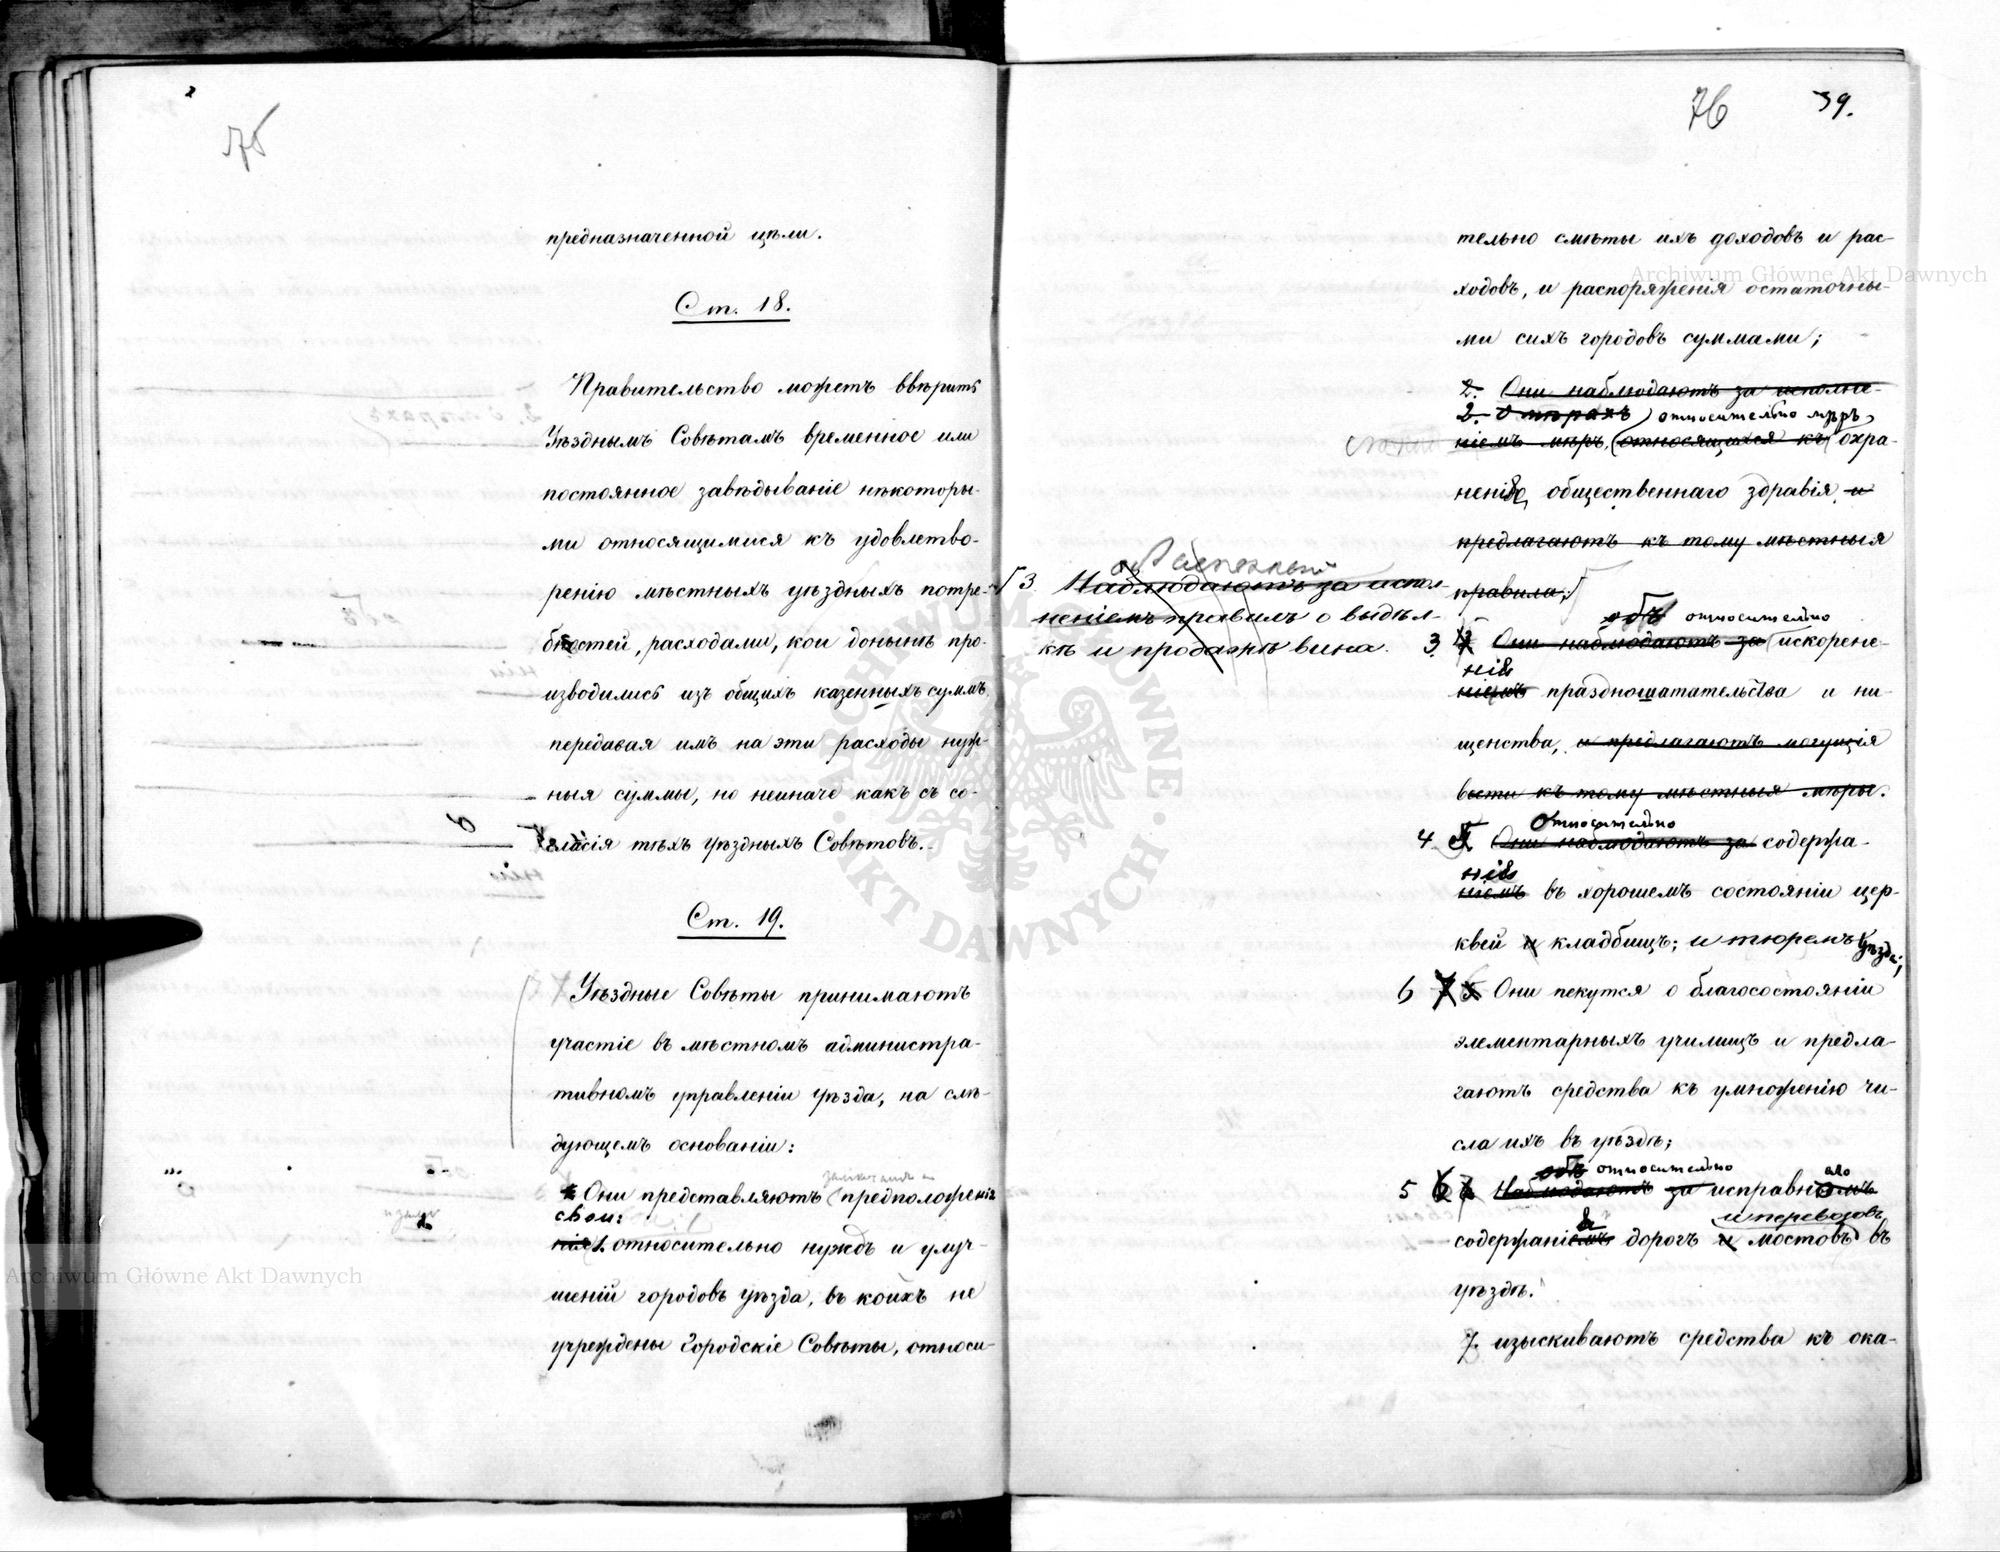 75
предназначенной цѣли.
Ст. 18.
Правительство можетъ ввѣрить
Уѣзднымъ Совѣтамъ временное или
постоянное завѣдываніе нѣкоторы-
ми относящимися къ удовлетво-
ренію мѣстныхъ уѣздныхъ потре-
бностей, расходами, кои донынѣ про-
изводились изъ общихъ казенныхъ суммъ,
передавая имъ на эти расходы нуж-
ныя суммы, но неиначе какъ съ со-
гласія тѣхъ уѣздныхъ Совѣтовъ.
Ст. 19.
Уѣздные Совѣты принимаютъ
участіе въ мѣстномъ администра-
тивномъ управленіи уѣзда, на слѣ-
дующемъ основаніи:
Они представляютъ предположенія
свои:
нія 1. относительно нуждъ и улуч-
шеній городовъ уѣзда, въ коихъ не
учреждены Городскіе Совѣты, относи-
76 39.
тельно смѣты ихъ доходовъ и рас-
ходовъ, и распоряженія остаточны-
ми сихъ городовъ суммами;
2. Они наблюдаютъ за исполне-
2. О мѣрахъ относительно мѣръ,
ніемъ мѣръ, относящихся къ охра-
ненію общественнаго здравія, и
предлагаютъ къ тому мѣстныя
правила;
3. Наблюдаютъ за испол-
неніемъ правилъ о выдѣл-
кѣ и продажѣ вина.
объ относительно
3. Они наблюдаютъ за искорене-
нія
ніемъ праздношатательства и ни-
щенства, и предлагаютъ могущія
вести къ тому мѣстныя мѣры.
Относительно
4. Они наблюдаютъ за содержа-
нія
ніемъ въ хорошемъ состояніи цер-
квей и кладбищъ; и тюремъ уѣзда;
6 7 Они пекутся о благосостояніи
элементарныхъ училищъ и предла-
гаютъ средства къ умноженію чи-
сла ихъ въ уѣздѣ;
объ относительно аго
5 6 Наблюдаютъ за исправнымъ
и перевозовъ
содержаніемъ дорогъ и мостовъ въ
уѣздѣ.
7. изыскиваютъ средства къ ока-
Archiwum Główne Akt Dawnych
Archiwum Główne Akt Dawnych
ARCHIWUM GŁÓWNE
AKT DAWNYCH